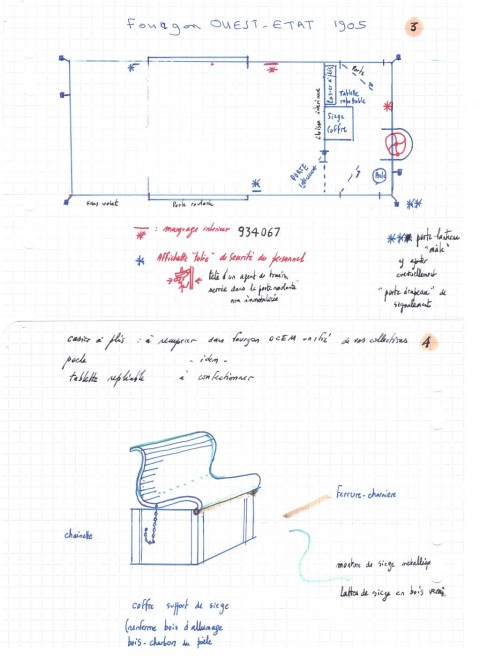 Fourgon OUEST-ETAT 1905
3
Porte
Casier à plis
Tablette
rabattable
Cloison intérieure
Siège
Coffre
PORTE
intérieure
Sans volet
Porte roulante
: marquage intérieur 934067
Affichette "tôlée" de sécurité du personnel
tête d'un agent de train,
serrée dans la porte roulante
non immobilisée
porte-lanterne
"mâle"
y ajouter
éventuellement
"porte drapeau" de
signalement
casier à plis : à récupérer dans fourgon OCEM unifié de vos collections
4
poêle - idem -
tablette repliable à confectionner
chainette
ferrure-charnière
monture de siège métallique
lattes de siège en bois verni
coffre support de siège
(renferme bois d'allumage
bois-charbon du poêle